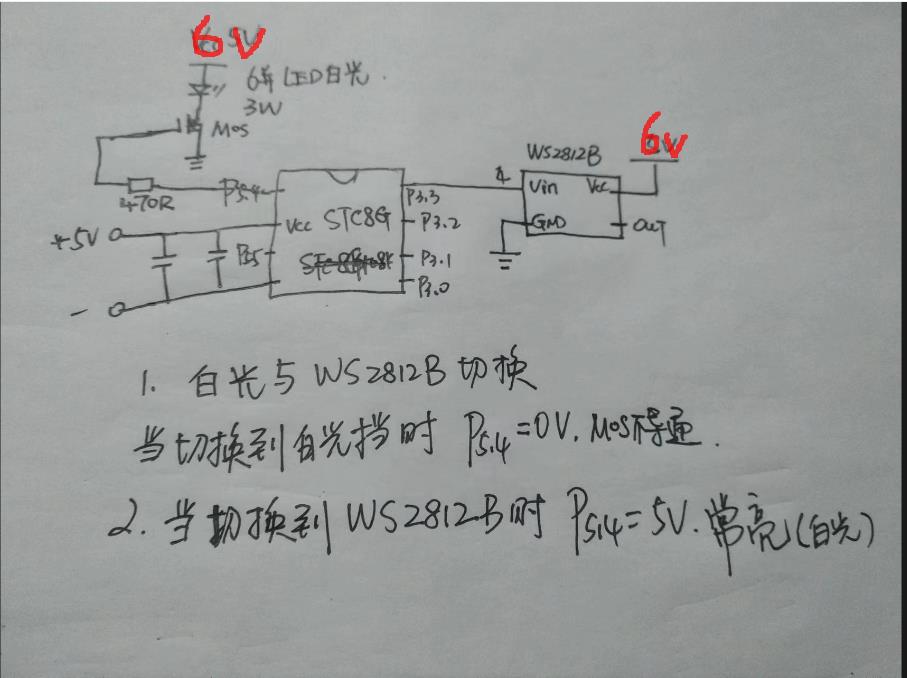 6V
6并LED白光.
3W
MOS
6V
WS2812B
4
Vin Vcc
GND OUT
470R
P5.4
P3.3
+5V
Vcc STC8G
P3.2
P5.5
P3.1
P3.0
-
1. 白光与WS2812B切换
当切换到白光挡时 P5.4=0V, MOS不导通.
2. 当切换到WS2812B时 P5.4=5V. 常亮(白光)